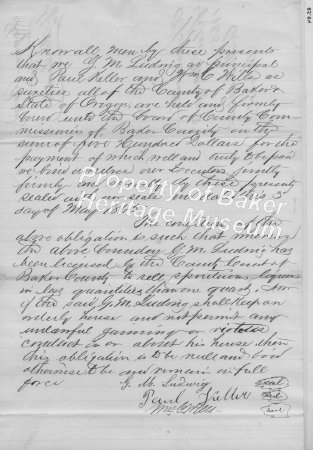 Know all men by these presents
that we G M Ludwig as principal
and Paul Keller and Wm C Wills as
sureties all of the County of Baker &
State of Oregon, are held and firmly
bound unto the board of County Com-
missioners of Baker County in the
sum of five Hundred Dollars for the
payment of which well and truly to be paid
we bind ourselves our Executors jointly
firmly and by these presents
sealed with our seals this
day of May
The condition of the
above obligation is such that whereas
the above bounden G M Ludwig has
been licensed by the County Court of
Baker County to sell spirituous liquors
in less quantities than one quart, Now
if the said G. M. Ludwig shall keep an
orderly house and not permit any
unlawful gaming or riotous
conduct in or about his house then
this obligation is to be null and void
otherwise to be and remain in full
force
G. M. Ludwig Seal
Paul Keller Seal
Wm C Wills Seal
Property of Baker
Heritage Museum